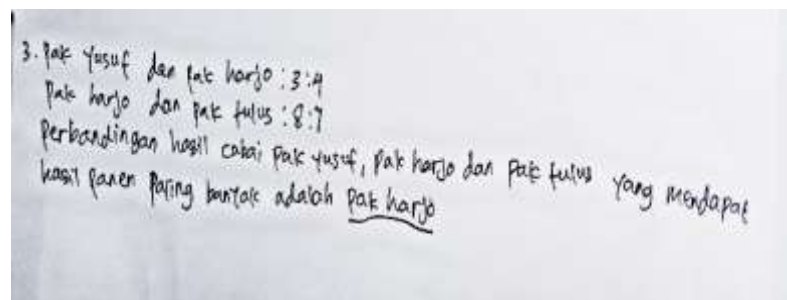 3. Pak Yusuf dan pak harjo : 3:4
Pak harjo dan pak tulus : 8:7
Perbandingan hasil cabai pak yusuf, pak harjo dan pak tulus yang mendapat
hasil panen paring banyak adalah pak harjo